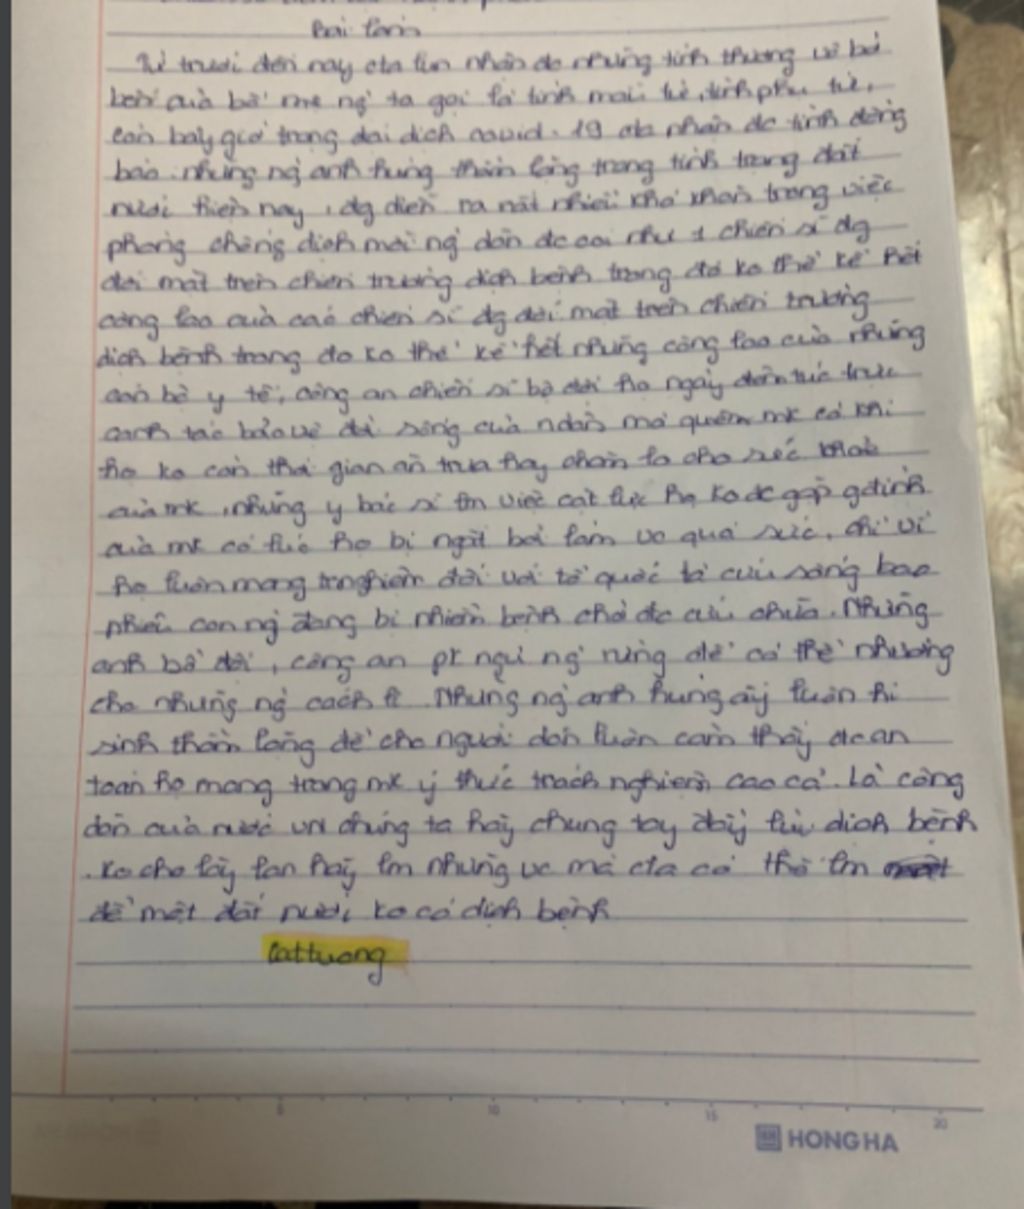 Bài làm
Từ trước đến nay cta lun nhận đc những tình thương vô bờ
bến của bố mẹ ng ta gọi là tình mẫu tử, tình phụ tử,
còn bây giờ trong đại dịch covid-19 cta nhận đc tình đồng
bào. những ng anh hùng thầm lặng trong tình trạng đất
nước hiện nay, đg diễn ra rất nhiều khó khăn trong việc
phòng chống dịch mỗi ng dân đc coi như 1 chiến sĩ đg
đối mặt trên chiến trường dịch bệnh trong đó ko thể kể hết
công lao của các chiến sĩ đg đối mặt trên chiến trường
dịch bệnh trong đó ko thể kể hết những công lao của những
cán bộ y tế, công an chiến sĩ bộ đội họ ngày đêm túc trực
canh tác bảo vệ đời sống của ndân mà quên mk có khi
họ ko còn thời gian ăn trưa hay chăm lo cho sức khoẻ
của mk, những y bác sĩ lm việc cật lực họ ko đc gặp gđình
của mk có lúc họ bị ngất bởi làm vc quá sức, chỉ vì
họ luôn mang trnghiệm đối với tổ quốc là cứu sống bao
nhiêu con ng đang bị nhiễm bệnh chờ đc cứu chữa. Những
anh bộ đội, công an pk ngủ ng rừng để có thể nhường
cho những ng cách li. Những ng anh hùng ấy luôn hi
sinh thầm lặng để cho người dân luôn cảm thấy đc an
toàn họ mang trong mk ý thức trách nghiệm cao cả. Là công
dân của nước VN chúng ta hãy chung tay đẩy lùi dịch bệnh
. ko cho lây lan hãy lm những vc mà cta có thể lm
để một đất nước ko có dịch bệnh
Cattuong
5 10 15 20
HONG HA